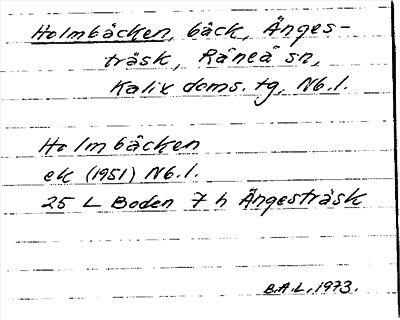 Holmbäcken, bäck, Änges-
träsk, Råneå sn,
Kalix doms. tg, Nb. l.
Holmbäcken
ek (1951) Nb. l.
25 L Boden 7 h Ängesträsk
B.A.L. 1973.